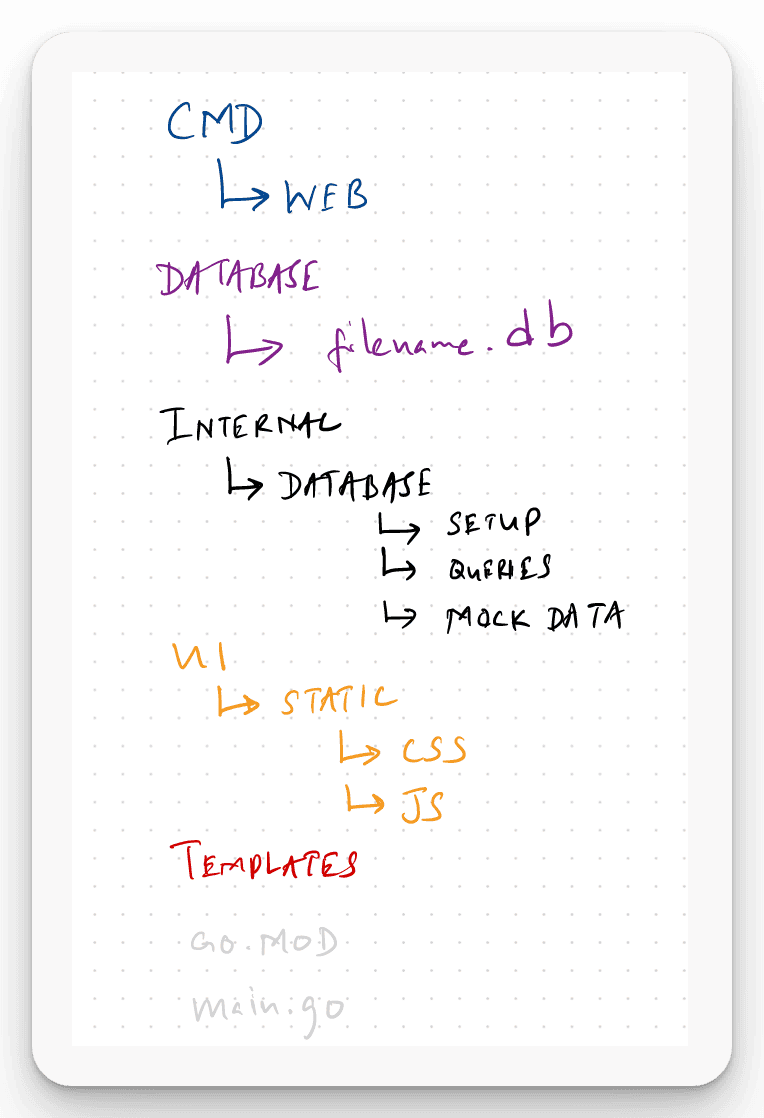 CMD
WEB
DATABASE
filename.db
INTERNAL
DATABASE
SETUP
QUERIES
MOCK DATA
UI
STATIC
CSS
JS
TEMPLATES
GO.MOD
main.go